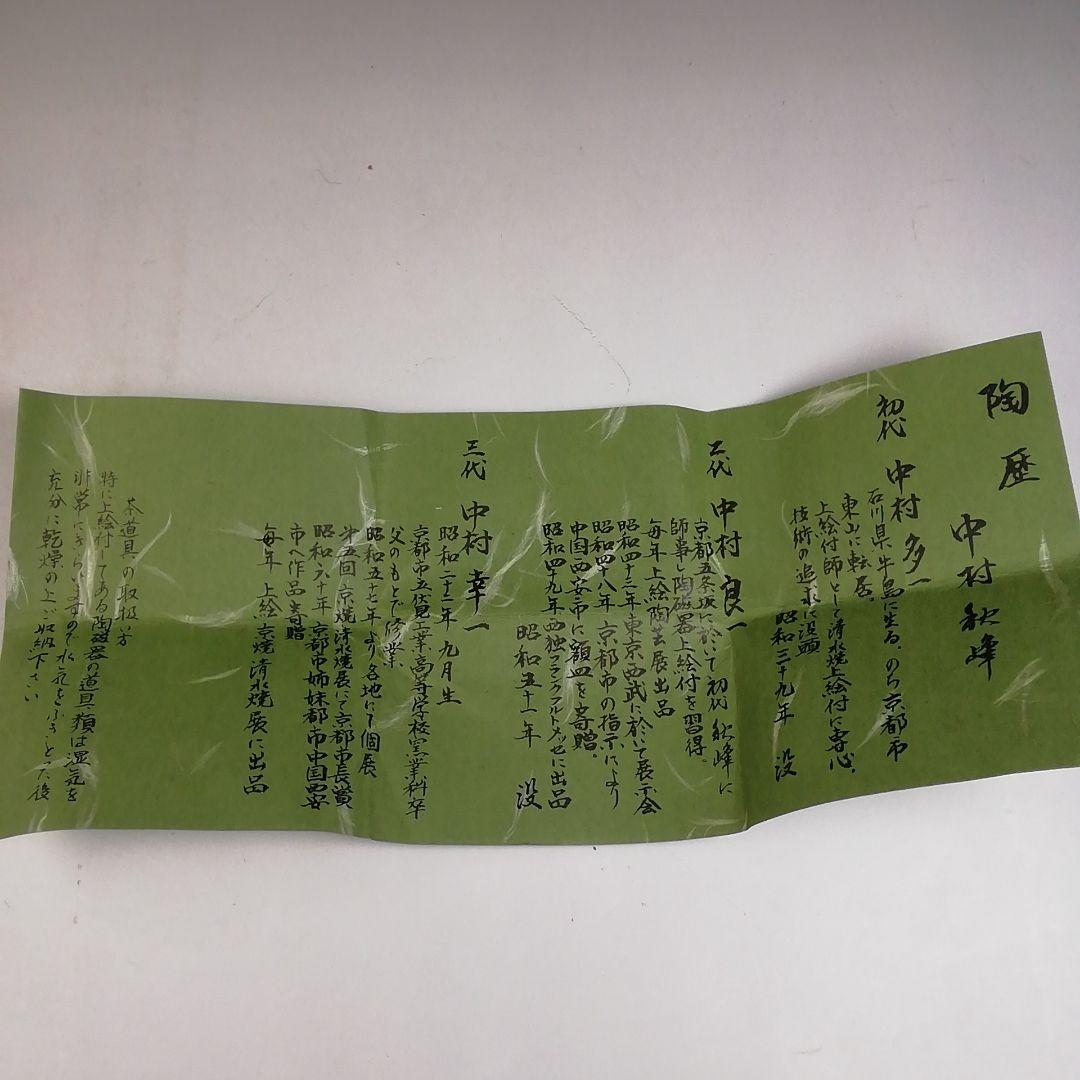 陶歴
中村秋峰
初代 中村多一
石川県牛島に生る。のち京都市
東山に転居。
上絵付師として清水焼上絵付に専心。
技術の追求に没頭
昭和三十九年 没
二代 中村良一
京都五条坂に於いて初代秋峰に
師事し陶磁器上絵付を習得。
毎年上絵陶芸展出品
昭和四十三年東京西武に於いて展示会
昭和四十八年京都市の指示により
中国西安市に額皿を寄贈。
昭和四十九年西独フランクフルトメッセに出品
昭和五十一年 没
三代 中村幸一
昭和二十二年九月生
京都市立伏見工業高等学校窯業科卒
父のもとで修業
昭和五十七年より各地にて個展
第五回京焼清水焼展にて京都市長賞
昭和六十年京都市姉妹都市中国西安
市へ作品寄贈
毎年 上絵京焼清水焼展に出品
茶道具の取扱い方
特に上絵付してある陶磁器の道具類は湿気を
非常にきらいますので水気をふきとった後
充分に乾燥の上ご収納下さい